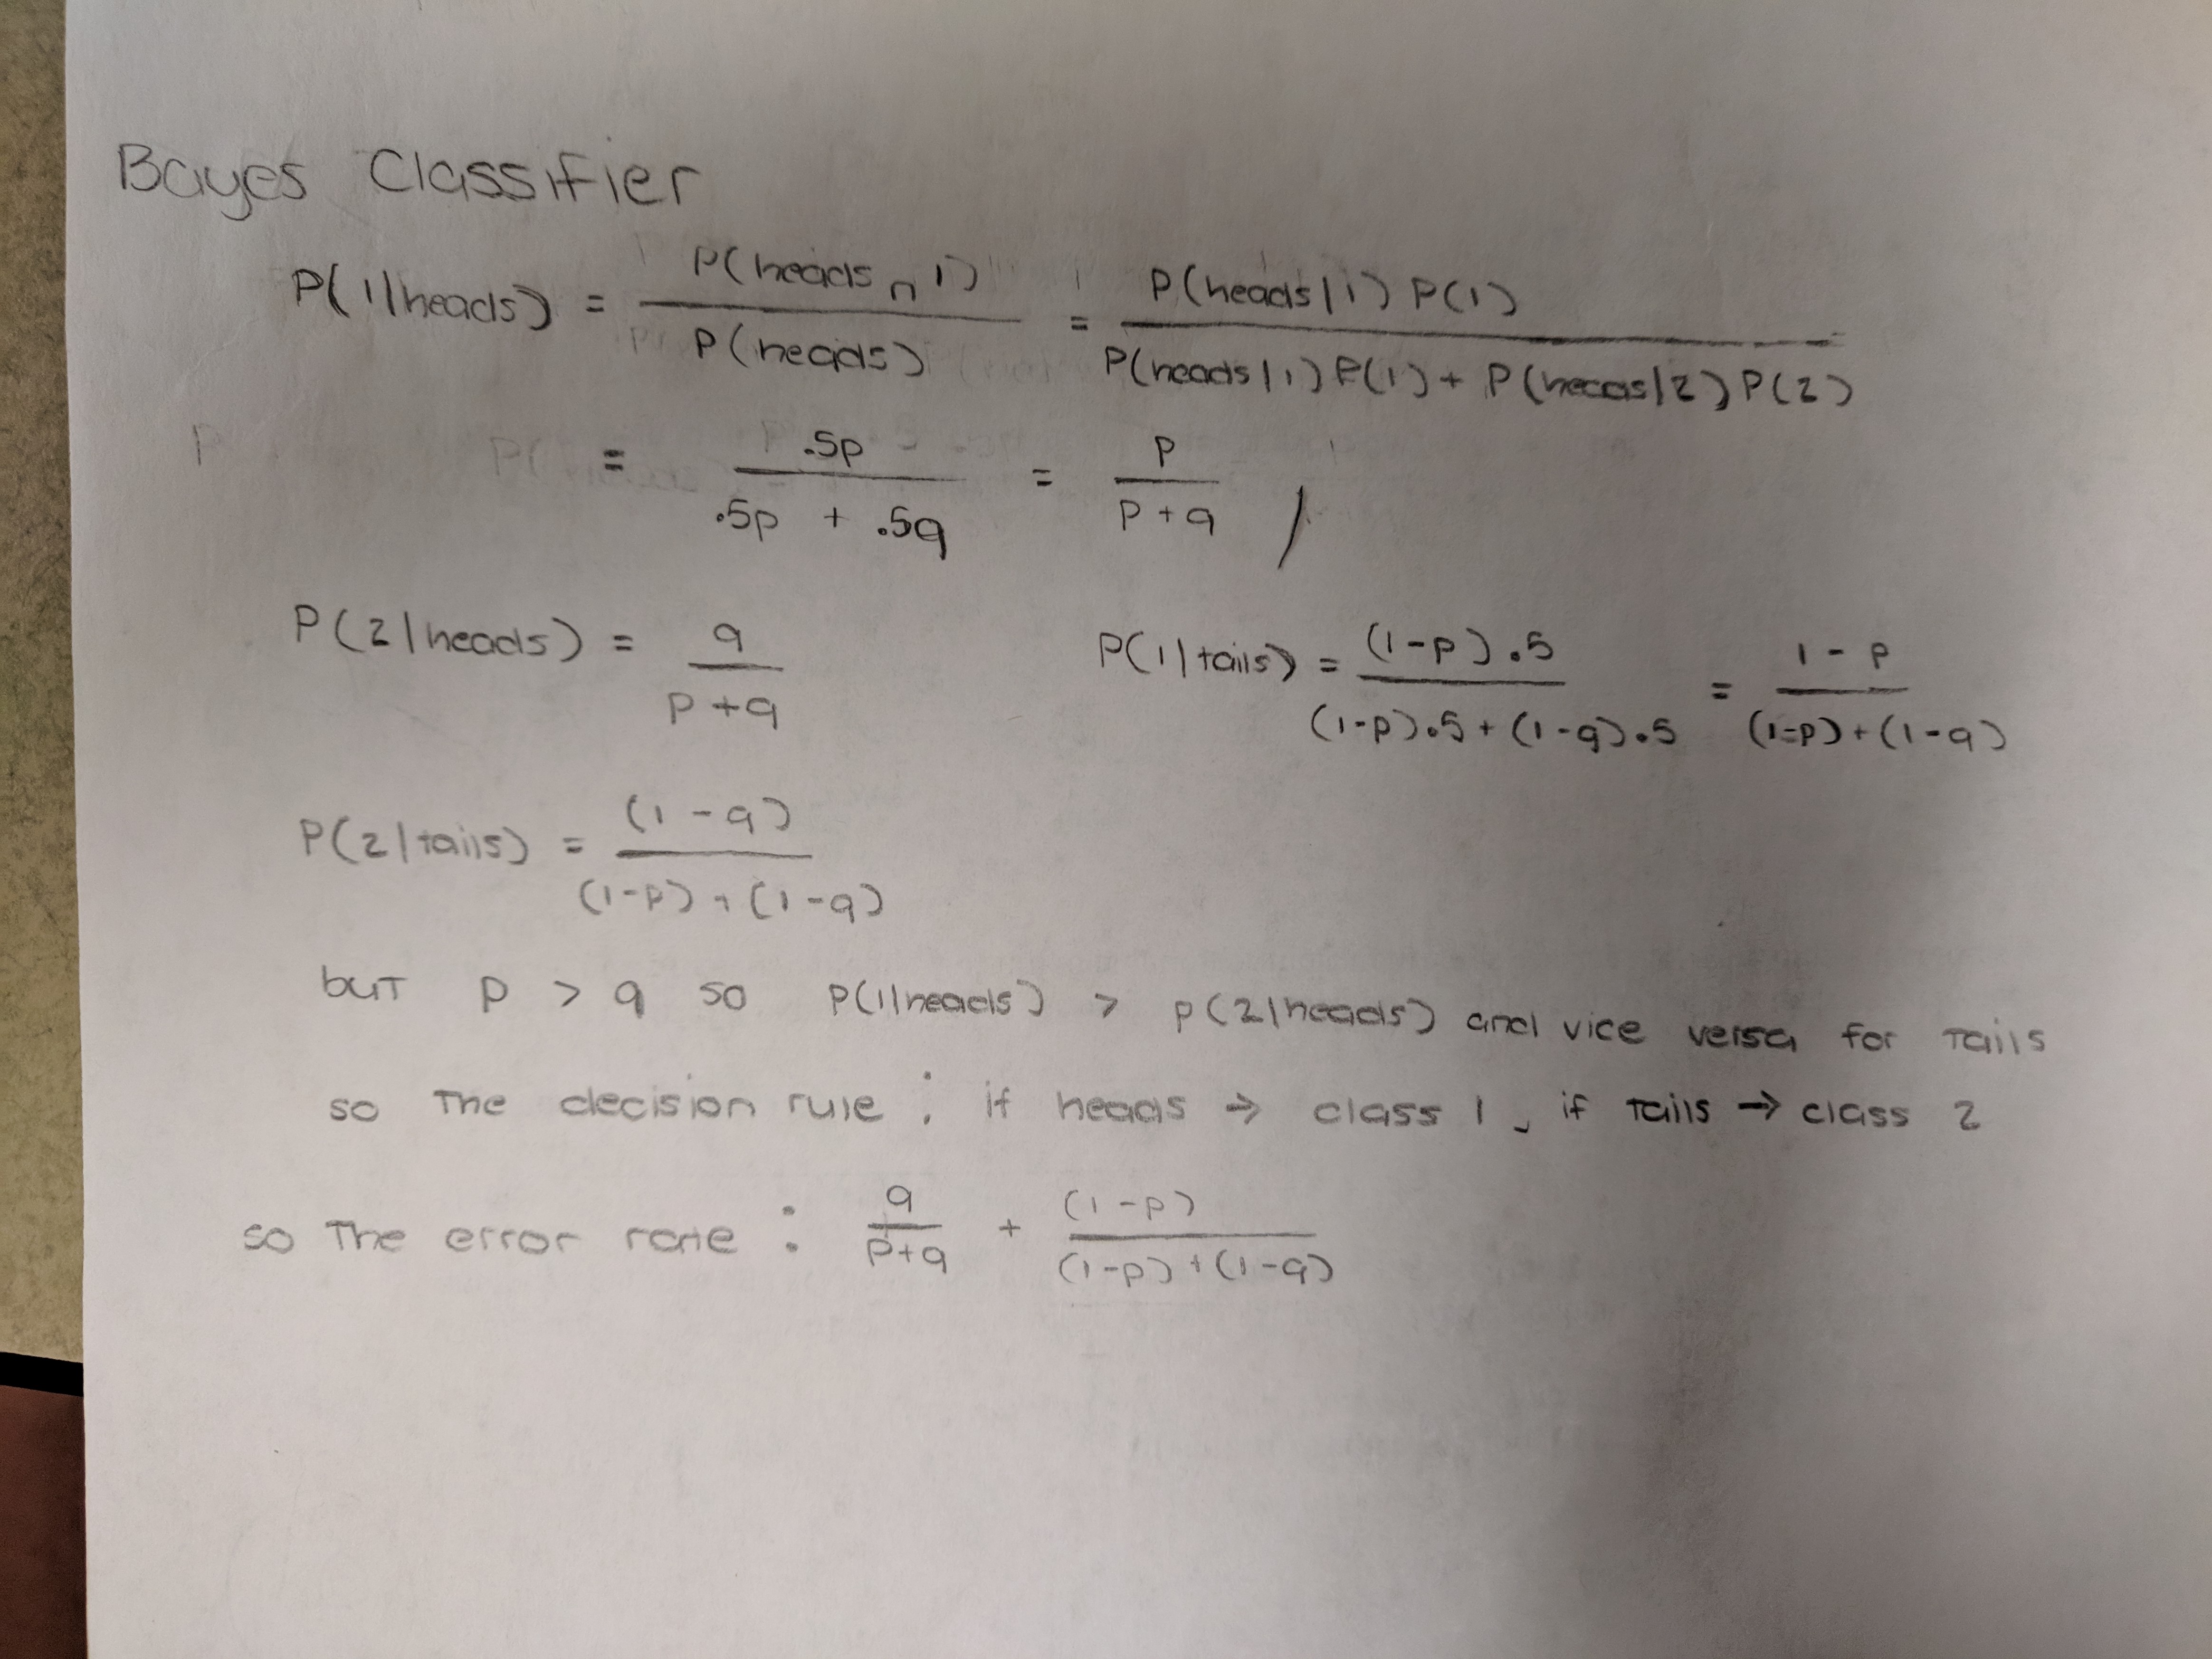 Bayes Classifier
P(1|heads) = P(heads ∩ 1) / P(heads) = P(heads|1) P(1) / P(heads|1) P(1) + P(heads|2) P(2)
= .5p / .5p + .5q = p / p + q /
P(2|heads) = q / p + q P(1|tails) = (1-p).5 / (1-p).5 + (1-q).5 = 1-p / (1-p)+(1-q)
P(2|tails) = (1-q) / (1-p)+(1-q)
but p > q so P(1|heads) > P(2|heads) and vice versa for tails
so the decision rule : if heads → class 1, if tails → class 2
so the error rate : q / p+q + (1-p) / (1-p)+(1-q)